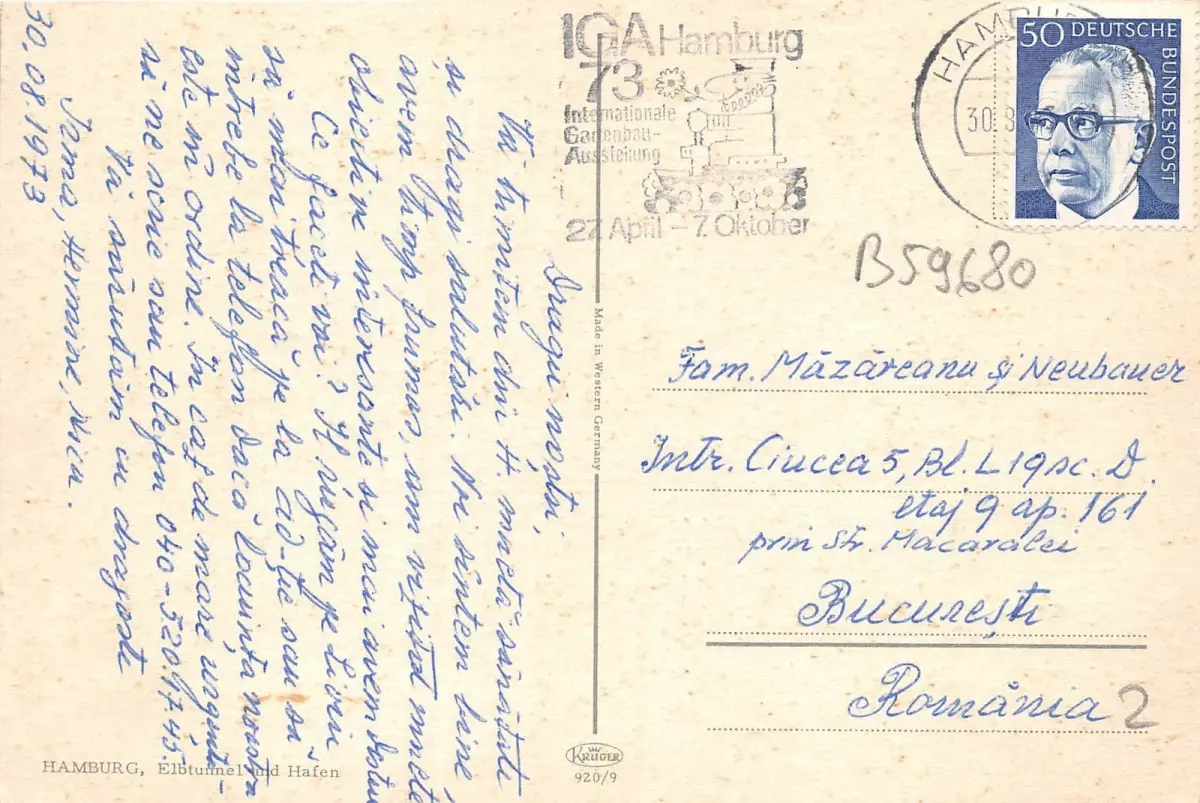 Dragii noștri,
Vă trimitem din H. multă sănătate
și dragi salutări. Noi sîntem bine,
avem timp frumos, am vizitat multe
obiective interesante și mai avem destule
Ce faceți voi? Îl rugăm pe Liviu
să mai treacă pe la ad-ție sau să
întrebe la telefon dacă locuința noastră
este în ordine. In caz de mare urgență
să ne scrie sau telefon 040-520.47.45.
Vă sărutăm cu dragoste
Irma, Hermine, Nicu.
30.08.1973
IGA Hamburg
73
Internationale
Gartenbau-
Ausstellung
27. April – 7. Oktober
HAMBURG
30.8
50 DEUTSCHE
BUNDESPOST
B59680
Made in Western Germany
Fam. Măzăreanu și Neubauer
Intr. Ciucea 5, Bl. L 19 sc. D.
etaj 9 ap. 161
prin Str. Macaralei
București
România
2
HAMBURG, Elbtunnel und Hafen
KRÜGER
920/9